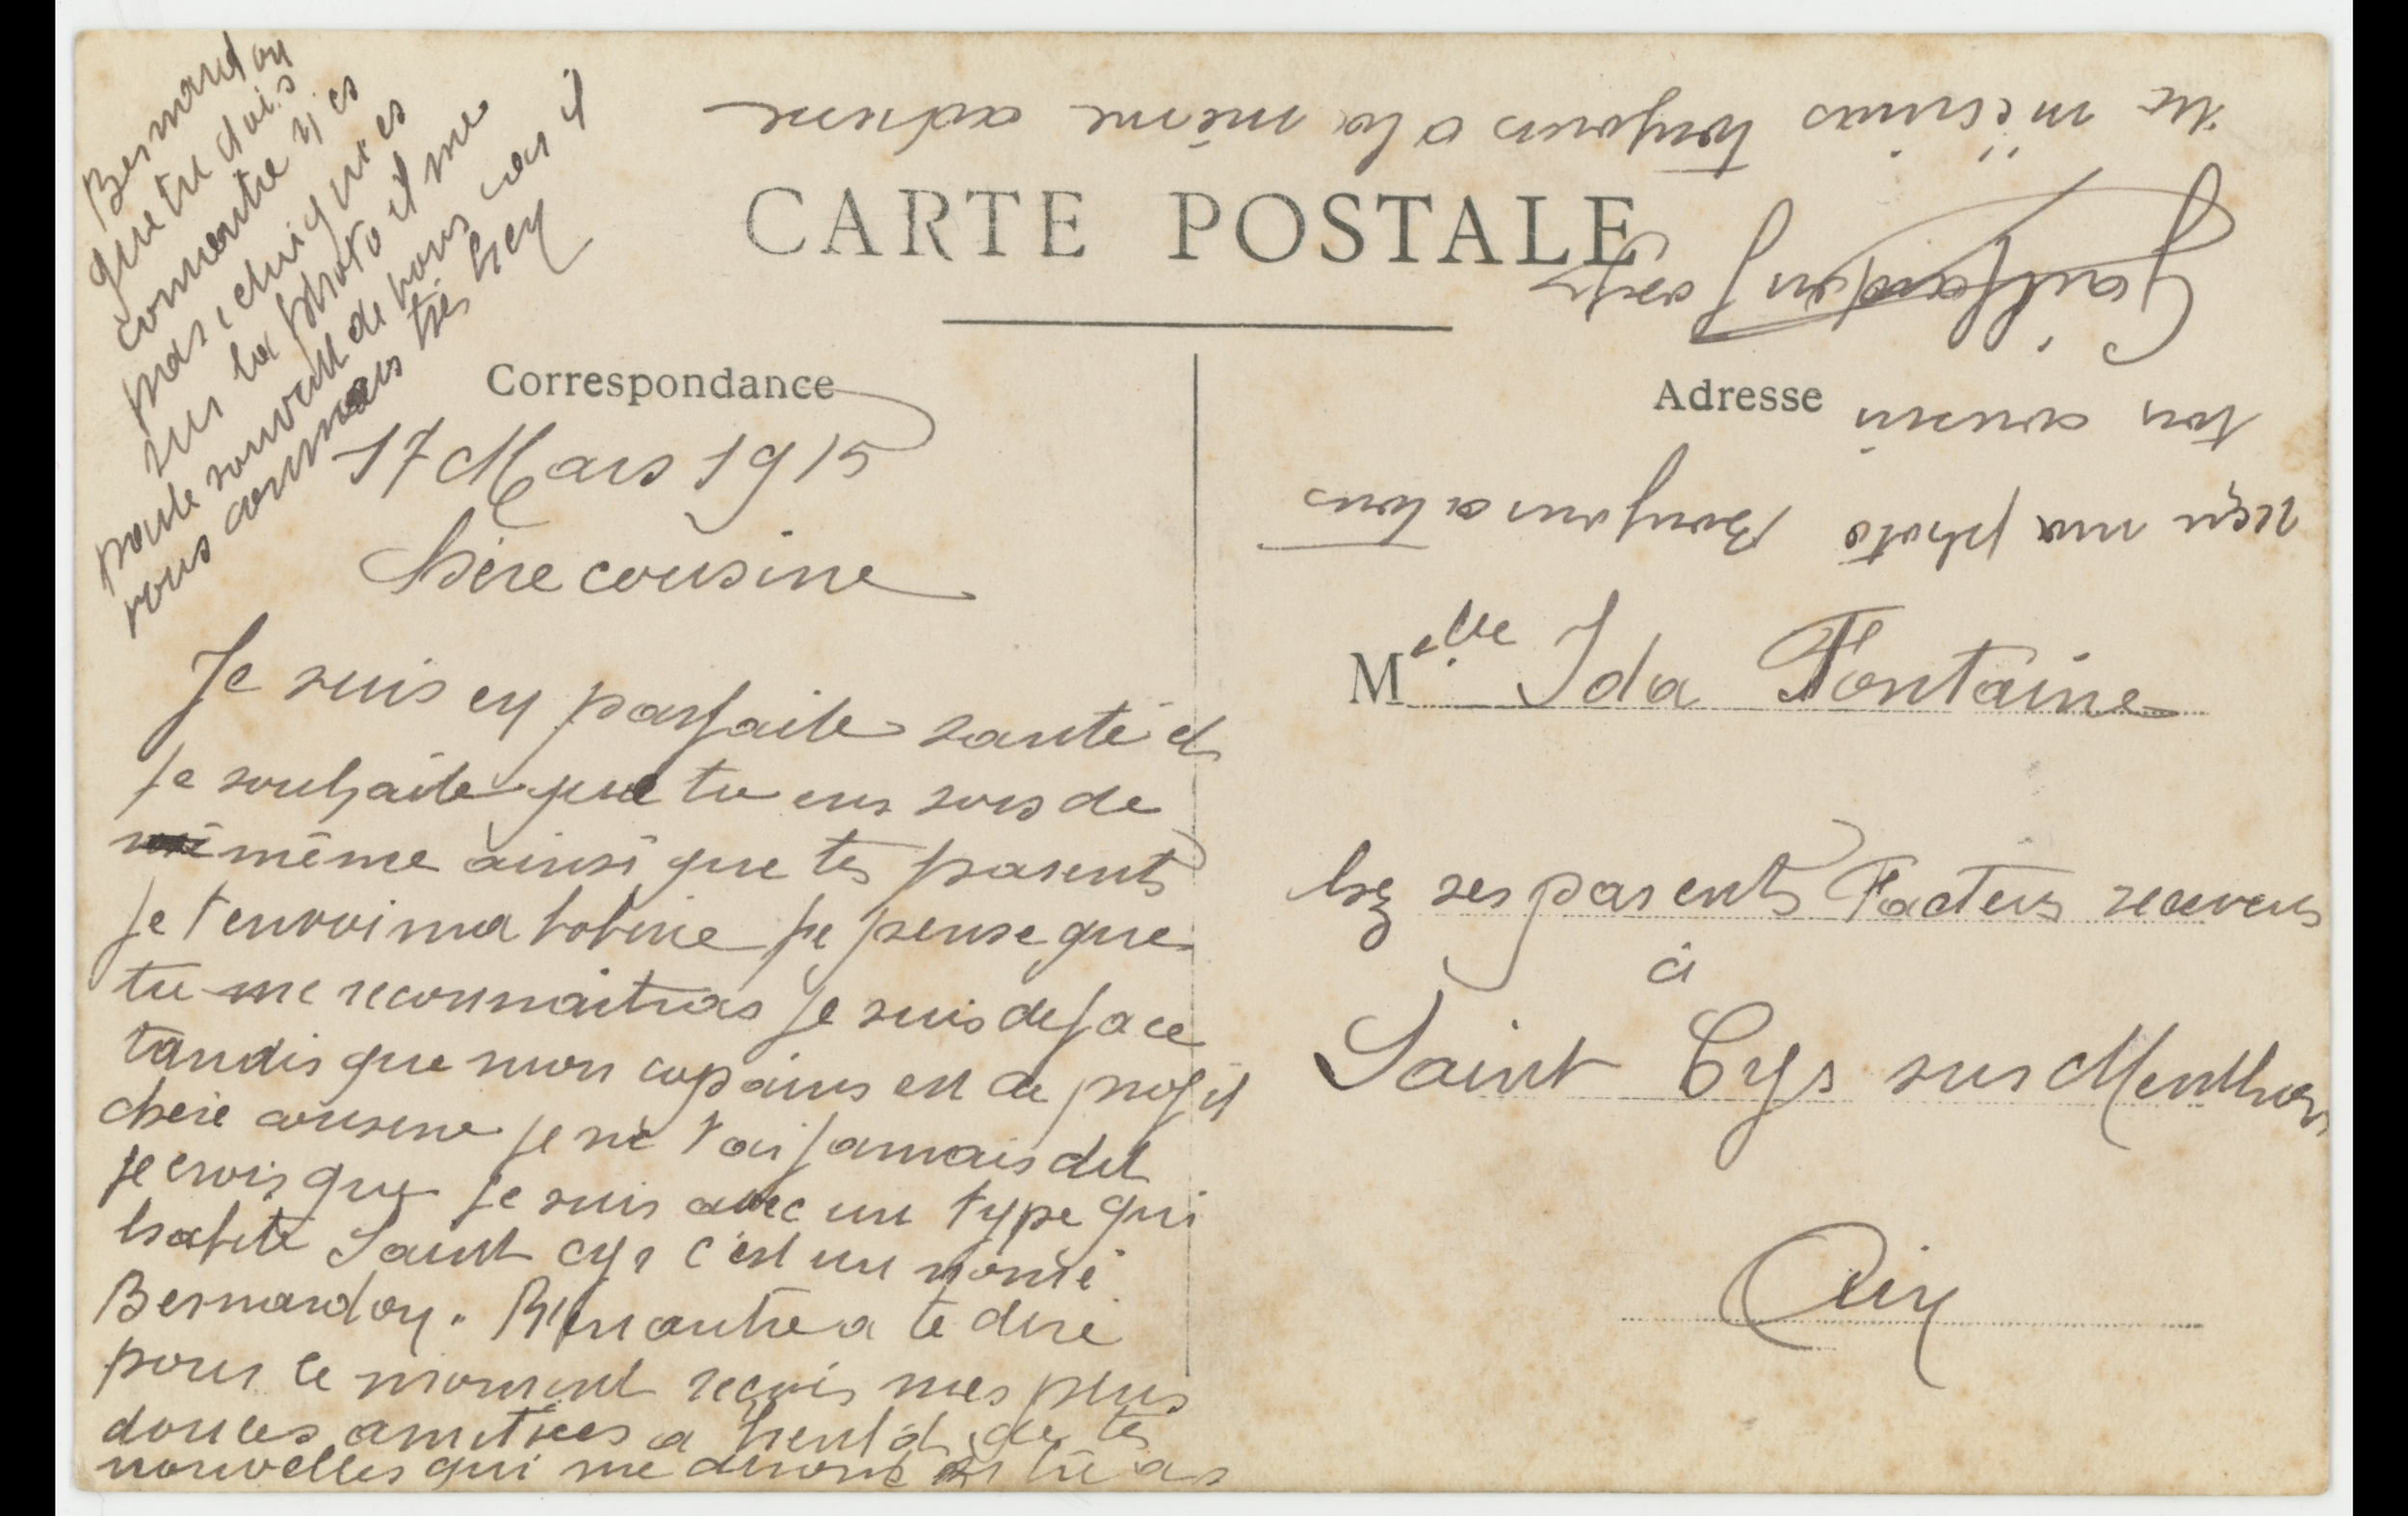 CARTE POSTALE
Correspondance
17 Mars 1915
Chère cousine
Je suis en parfaite santé et
je souhaite que tu en sois de
même ainsi que tes parents
je t'envoi ma bobine je pense que
tu me reconnaitras je suis de face
tandis que mon copains est de profil
chère cousine je ne t'ai jamais dit
je crois que je suis avec un type qui
habite Saint Cyr c'est un nomé
Bernardon. Rien autre a te dire
pour le moment reçois mes plus
douces amitiées a bientôt de tes
nouvelles qui me diront si tu as
reçu ma photo Bonjour a tous
ton cousin
Gailfondon Joseph
tu m'écriras toujours a la même adresse
Bernardon
que tu dois
connaitre y es
pas, celui qui es
sur la photo il me
parle souvent de vous car il
vous connais très bien
Adresse
Melle Ida Fontaine
chez ses parents Facteur receveur
à
Saint Cyr sur Menthon
Ain